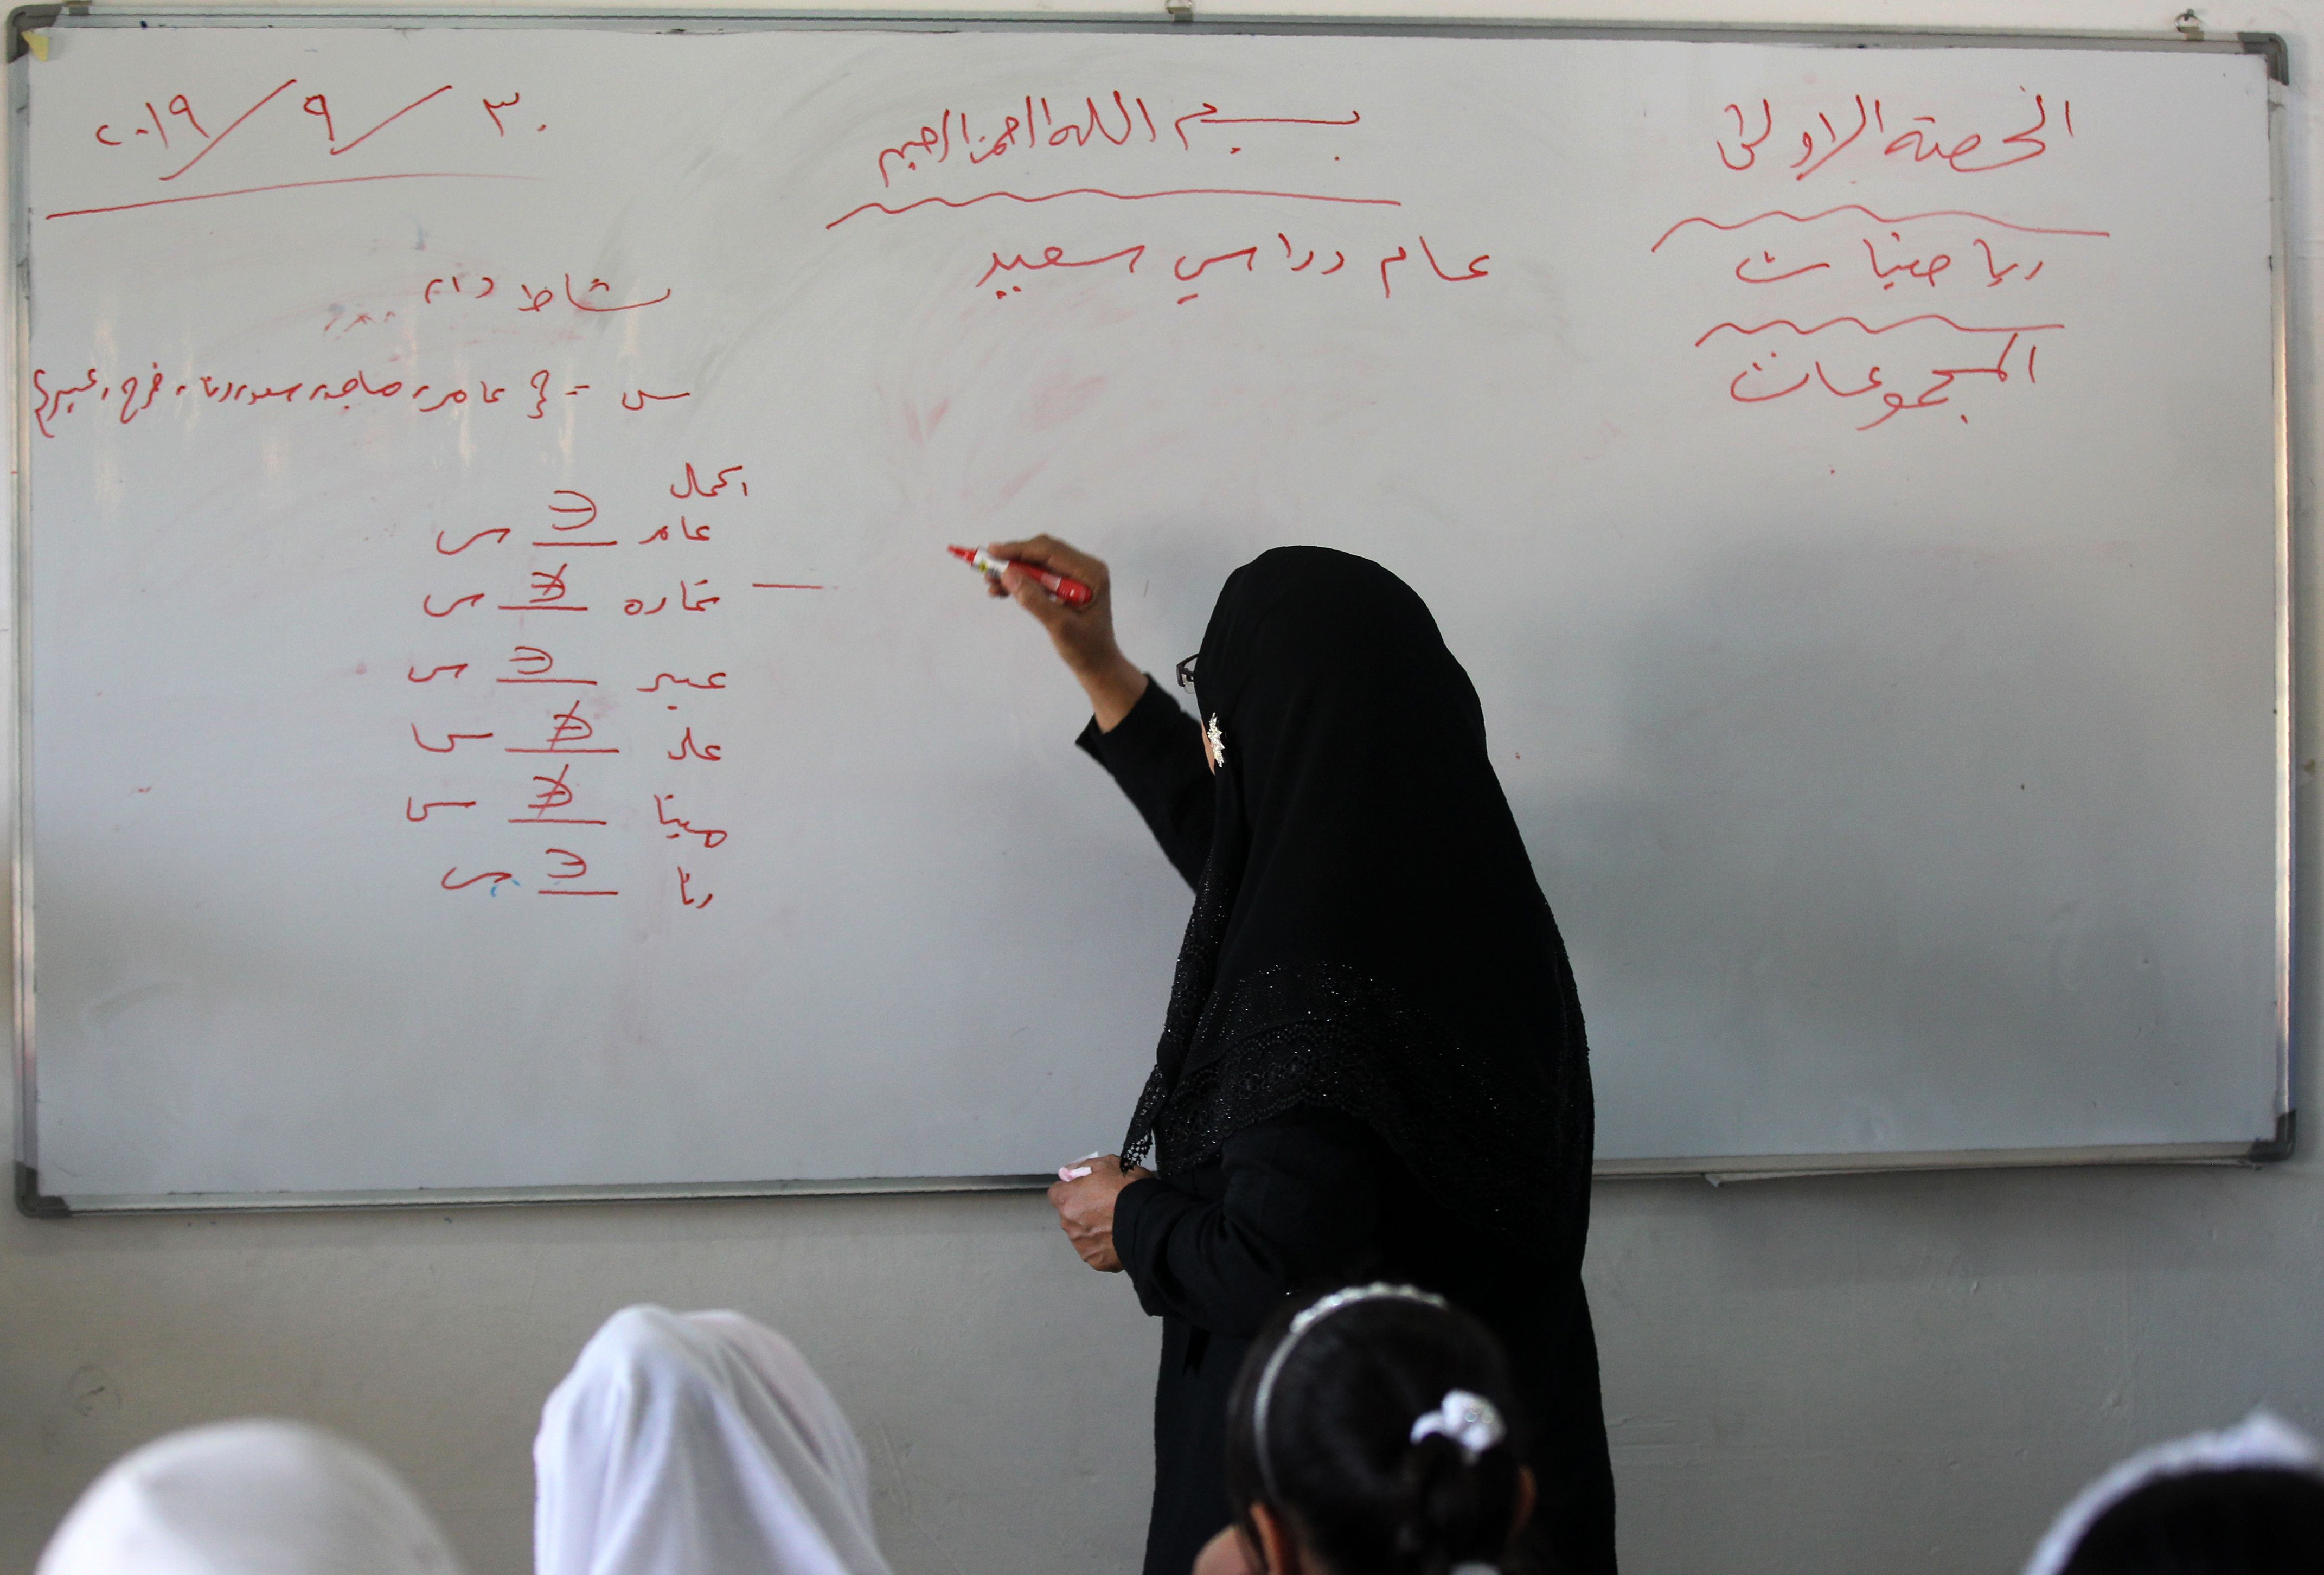 الحصة الاولى
رياضيات
المجموعات
بسم الله الرحمن الرحيم
عام دراسي سعيد
٣٠ / ٩ / ٢٠١٩
نشاط (٢)
س = { عامر، ماجد، سعد، رنا، فرح، عبير }
اكمال
عامر ∋ س
عماره ∌ س
عبير ∋ س
علا ∌ س
مينا ∌ س
رنا ∋ س